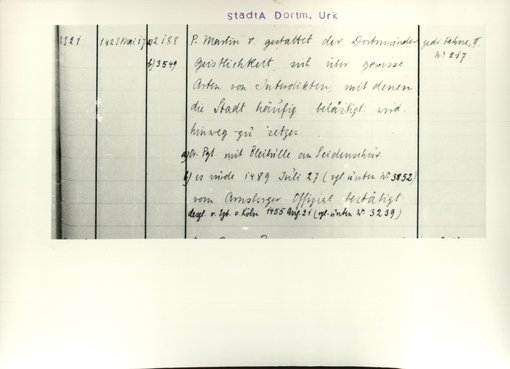 StadtA Dortm. Urk
2321 1421 Mai 17 a) 2188 P. Martin V. gestattet der Dortmunder gedr. Fahne, II.
b) 3549 Geistlichkeit sich über gewisse Nº 217.
Arten von Interdikten, mit denen
die Stadt häufig belästigt wird
hinweg zu setzen
a) Or. Pgt. mit Bleibulle an Seidenschnur
b) es wurde 1489 Juli 27 (vgl. unten Nº 3852)
vom Arnsberger Offizial bestätigt.
desgl. v. Köln 1455 Aug. 21 (vgl. unten Nº 3239)